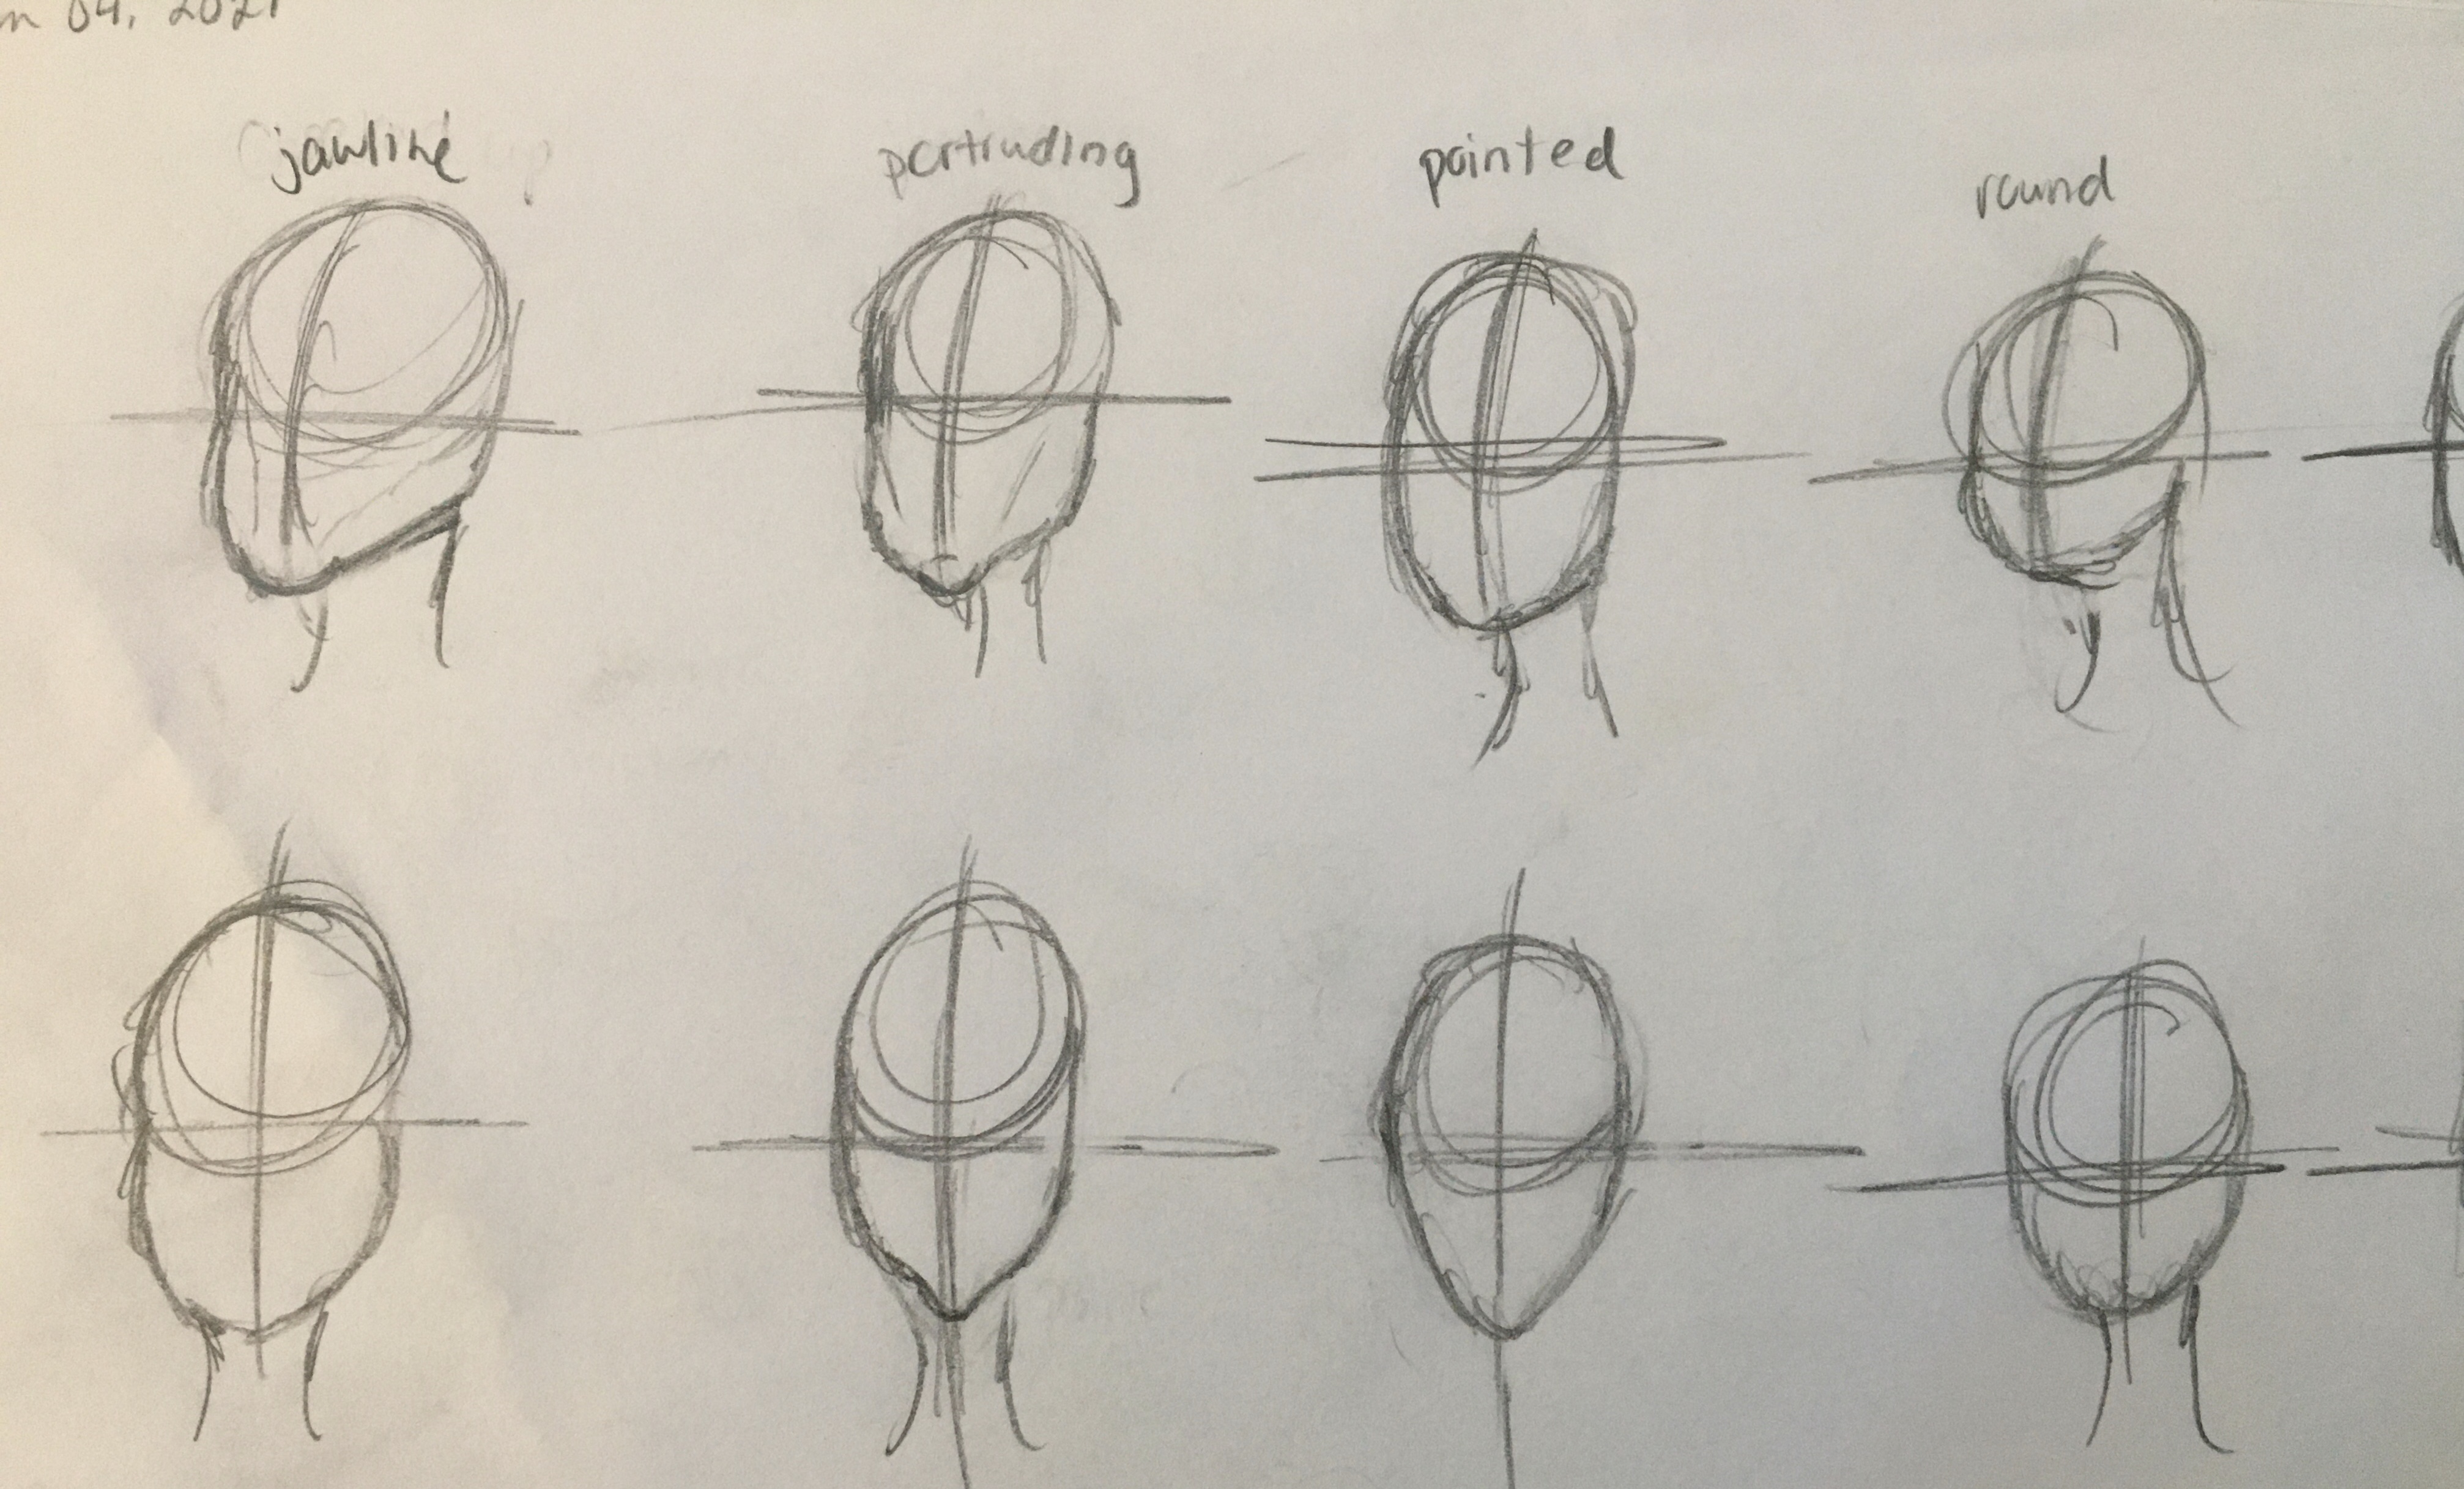 04. 2021
jawline
portruding
pointed
round